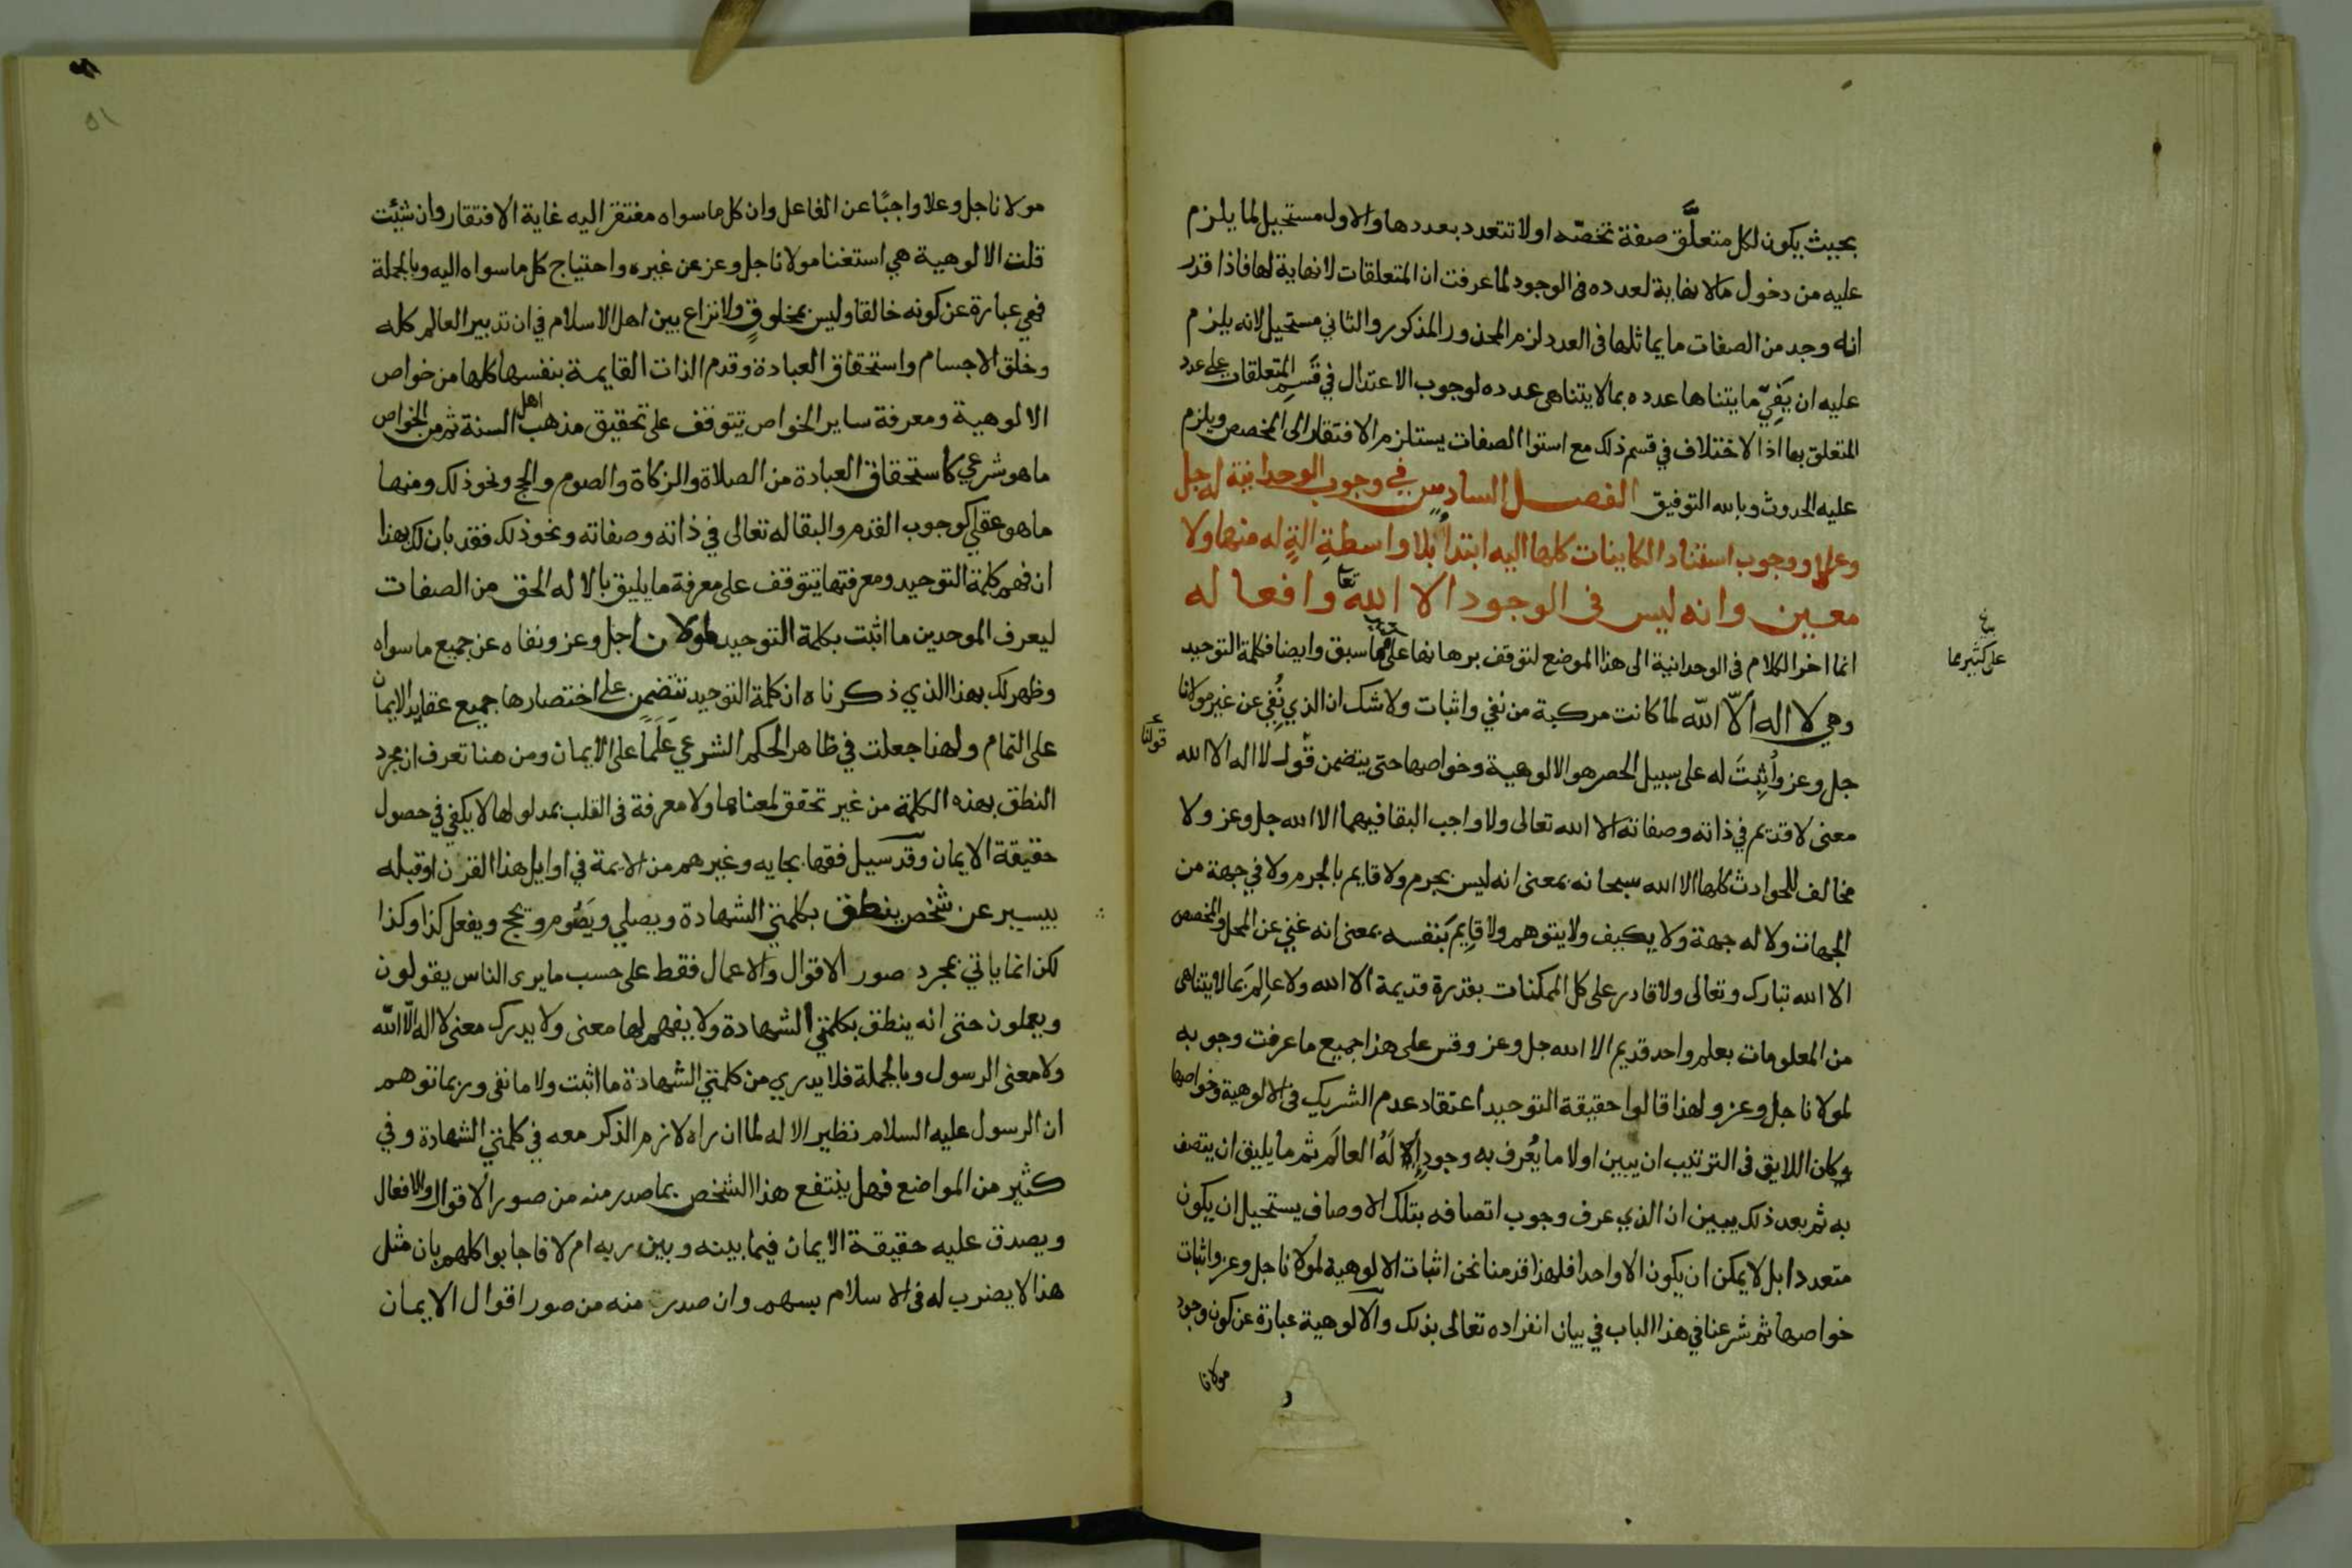 بحيث يكون لكل متعلَّق صفة تخصّه اولا تتعدد بعددها والاول مستحيل لما يلزم
عليه من دخول مالا نهاية لعدده فى الوجود لما عرفت ان المتعلقات لا نهاية لها فاذا قدر
انه وجد من الصفات ما يماثلها فى العدد لزم المحذور المذكور والثاني مستحيل لانه يلزم
عليه ان يَفِيّ ما يتناها عدده بما لا يتناهى عدده لوجوب الاعتدال في قَسمِ المتعلقات على عدد
المتعلق بها اذا الاختلاف في قسم ذلك مع استوا الصفات يستلزم الافتقار الى المخصص ويلزم
عليه الحدوث وبالله التوفيق الفصل السادس في وجوب الوحدانية له جل
وعلا ووجوب استناد الكاينات كلها اليه ابتداً بلا واسطةِ الةٍ له منها ولا
معين وانه ليس فى الوجود الا الله تعالى وافعاله
انما اخر الكلام فى الوحدانية الى هذا الموضع لتوقف برهانها على ما سبق وايضا فكلمة التوحيد
بيا
على كثير مما
وهي لا اله الّا الله لما كانت مركبة من نفي واثبات ولا شك ان الذي نُفِي عن غير مولانا
جل وعز واُثبِتَ له على سبيل الحصر هو الالوهية وخواصها حتى يتضمن قول لا اله الا الله
قولنا
معنى لا قديم في ذاته وصفاته الا الله تعالى ولا واجب البقا فيهما الا الله جل وعز ولا
مخالف للحوادث كلها الا الله سبحانه بمعنى انه ليس بجرم ولا قايم بالجرم ولا في جهة من
الجهات ولا له جهة ولا يكيف ولا يتوهم ولا قايم بنفسه بمعنى انه غني عن المحل والمخصص
الا الله تبارك وتعالى ولا قادر على كل الممكنات بقدرة قديمة الا الله ولا عالِم بما لا يتناهى
من المعلومات بعلم واحد قديم الا الله جل وعز وقس على هذا جميع ما عرفت وجوبه
لمولانا جل وعز ولهذا قالوا حقيقة التوحيد اعتقاد عدم الشريك فى الالوهية وخواصها
وكان اللايق فى الترتيب ان يبين اولا ما يُعرف به وجود الاله العالَم ثم ما يليق ان يتصف
به ثم بعد ذلك يبين ان الذي عرف وجوب اتصافه بتلك الاوصاف يستحيل ان يكون
متعددا بل لا يمكن ان يكون الا واحدا فلهذا قدمنا نحن اثبات الالوهية لمولانا جل وعز واثبات
خواصها ثم شرعنا في هذا الباب في بيان انفراده تعالى بذلك والالوهية عبارة عن كون وجود
مولانا
مولانا جل وعلا واجبًا عن الفاعل وان كل ما سواه مفتقر اليه غاية الافتقار وان شيئت
قلت الالوهية هي استغنا مولانا جل وعز عن غيره واحتياج كل ما سواه اليه وبالجملة
فهي عبارة عن كونه خالقا وليس بمخلوقٍ ولا نزاع بين اهل الاسلام في ان تدبير العالم كله
وخلق الاجسام واستحقاق العبادة وقدم الذات القايمة بنفسها كلها من خواص
الالوهية ومعرفة ساير الخواص يتوقف على تحقيق مذهب اهل السنة ثم من الخواص
ما هو شرعي كاستحقاق العبادة من الصلاة والزكاة والصوم والحج ونحو ذلك ومنها
ما هو عقلي كوجوب القدم والبقا له تعالى في ذاته وصفاته ونحو ذلك فقد بان لك بهذا
ان فهم كلمة التوحيد ومعرفتها يتوقف على معرفة ما يليق بالاله الحق من الصفات
ليعرف الموحدين ما اثبت بكلمة التوحيد لمولانا جل وعز ونفاه عن جميع ما سواه
وظهر لك بهذا الذي ذكرناه ان كلمة التوحيد تتضمن على اختصارها جميع عقايد الايمان
على التمام ولهذا جعلت في ظاهر الحكم الشرعي عَلَمًا على الايمان ومن هنا تعرف ان مجرد
النطق بهذه الكلمة من غير تحقق لمعناها ولا معرفة فى القلب بمدلولها لا يكفي في حصول
حقيقة الايمان وقد سيل فقها بجايه وغيرهم من الايمة في اوايل هذا القرن او قبله
بيسير عن شخص ينطق بكلمتي الشهادة ويصلي ويَصُوم ويحج ويفعل كذا وكذا
لكن انما ياتي بمجرد صور الاقوال والاعمال فقط على حسب ما يرى الناس يقولون
ويعملون حتى انه ينطق بكلمتي الشهادة ولا يفهم لها معنى ولا يدرك معنى لا اله الّا الله
ولا معنى الرسول وبالجملة فلا يدري من كلمتي الشهادة ما اثبت ولا ما نفى وربما توهم
ان الرسول عليه السلام نظير الاله لما ان راه لازم الذكر معه في كلمتي الشهادة وفي
كثير من المواضع فهل ينتفع هذا الشخص بما صدر منه من صور الاقوال والافعال
ويصدق عليه حقيقة الايمان فيما بينه وبين ربه ام لا فاجابوا كلهم بان مثل
هذا لا يضرب له فى الاسلام بسهم وان صدرت منه من صور اقوال الايمان